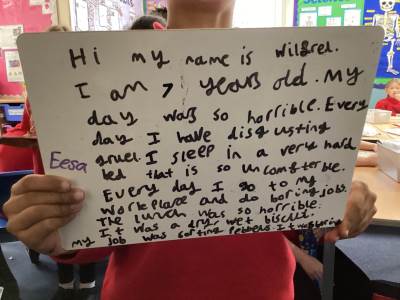 Science
Hi my name is wilfred.
I am 7 years old. My
day was so horrible. Every
day I have disgusting
gruel. I sleep in a very hard
bed that is so uncomfterble.
Eesa
Every day I go to my
workplace and do boring jobs.
The lunch was so horrible.
It was a dry, wet biscuit.
my job was sorting pebbles. It was boring